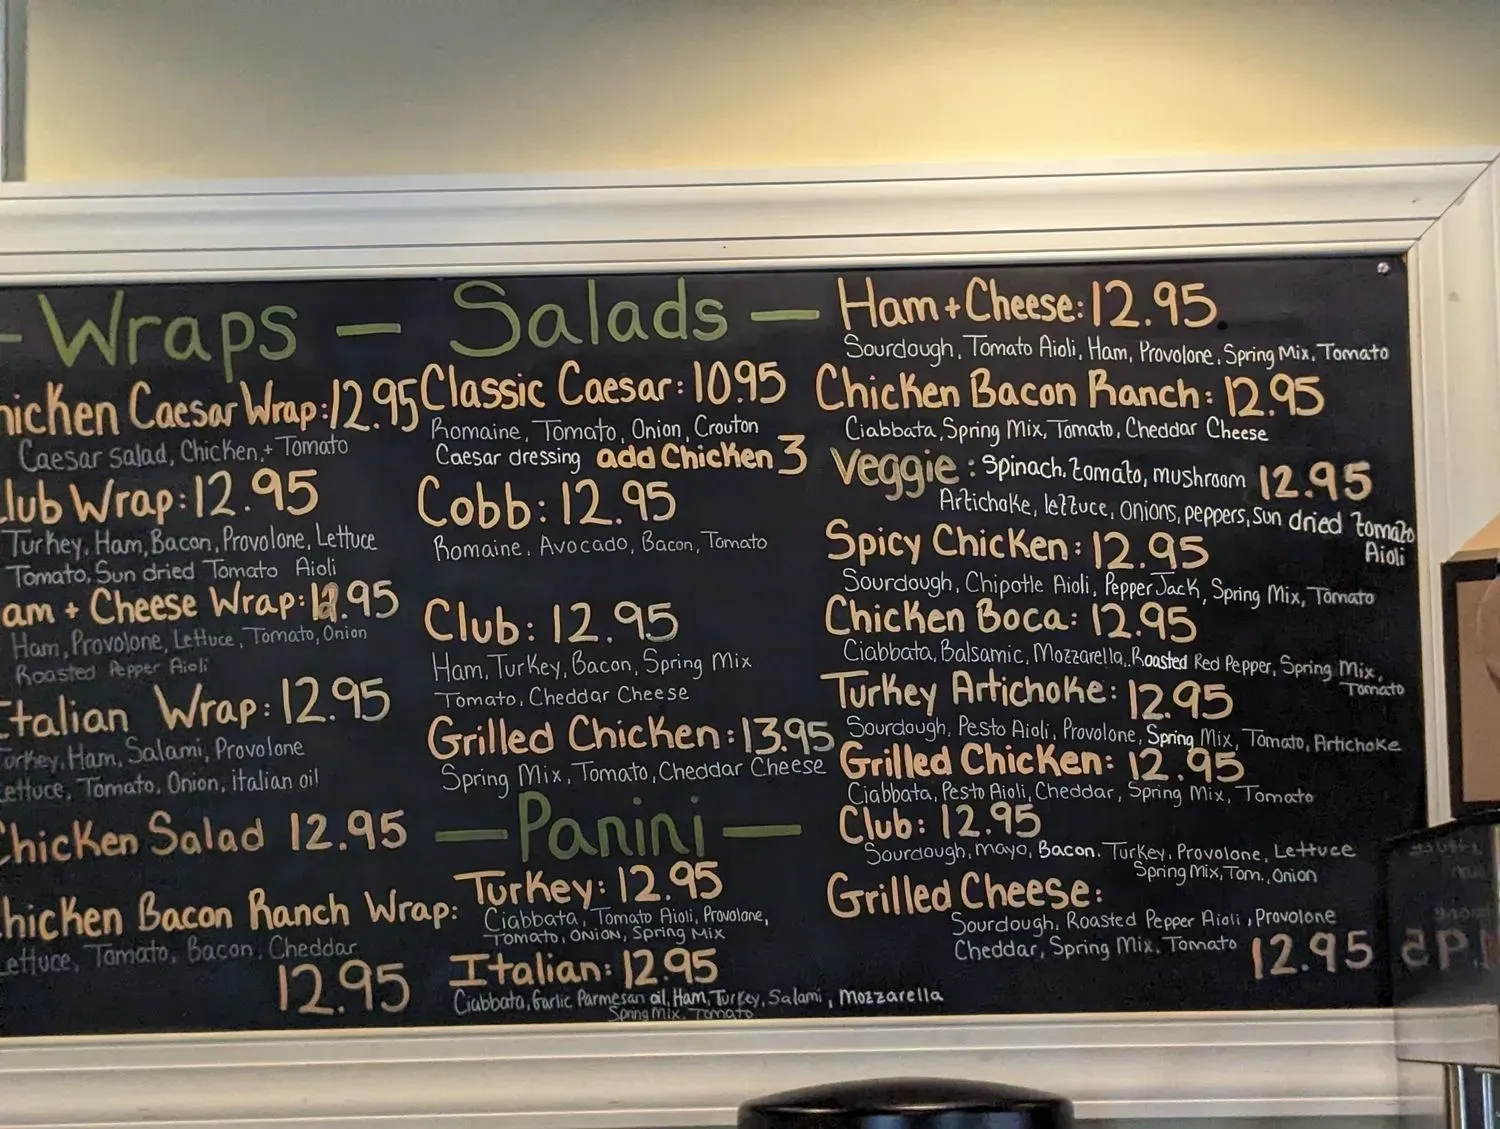 - Wraps -
hicken Caesar Wrap: 12.95
Caesar salad, Chicken, + Tomato
lub Wrap: 12.95
Turkey, Ham, Bacon, Provolone, Lettuce
Tomato, Sun dried Tomato Aioli
am + Cheese Wrap: 12.95
Ham, Provolone, Lettuce, Tomato, Onion
Roasted Pepper Aioli
Italian Wrap: 12.95
Turkey, Ham, Salami, Provolone
Lettuce, Tomato, Onion, italian oil
Chicken Salad 12.95
hicken Bacon Ranch Wrap:
Lettuce, Tomato, Bacon, Cheddar
12.95
Salads -
Classic Caesar: 10.95
Romaine, Tomato, Onion, Crouton
Caesar dressing add Chicken 3
Cobb: 12.95
Romaine, Avocado, Bacon, Tomato
Club: 12.95
Ham, Turkey, Bacon, Spring Mix
Tomato, Cheddar Cheese
Grilled Chicken: 13.95
Spring Mix, Tomato, Cheddar Cheese
- Panini -
Turkey: 12.95
Ciabbata, Tomato Aioli, Provolone,
Tomato, Onion, Spring Mix
Italian: 12.95
Ciabbata, Garlic Parmesan oil, Ham, Turkey, Salami, Mozzarella
Spring Mix, Tomato
Ham + Cheese: 12.95
Sourdough, Tomato Aioli, Ham, Provolone, Spring Mix, Tomato
Chicken Bacon Ranch: 12.95
Ciabbata, Spring Mix, Tomato, Cheddar Cheese
Veggie: Spinach, tomato, mushroom 12.95
Artichoke, lettuce, onions, peppers, sun dried tomato
Aioli
Spicy Chicken: 12.95
Sourdough, Chipotle Aioli, Pepper Jack, Spring Mix, Tomato
Chicken Boca: 12.95
Ciabbata, Balsamic, Mozzarella, Roasted Red Pepper, Spring Mix,
Tomato
Turkey Artichoke: 12.95
Sourdough, Pesto Aioli, Provolone, Spring Mix, Tomato, Artichoke
Grilled Chicken: 12.95
Ciabbata, Pesto Aioli, Cheddar, Spring Mix, Tomato
Club: 12.95
Sourdough, mayo, Bacon, Turkey, Provolone, Lettuce
Spring Mix, Tom., Onion
Grilled Cheese:
Sourdough, Roasted Pepper Aioli, Provolone
Cheddar, Spring Mix, Tomato 12.95